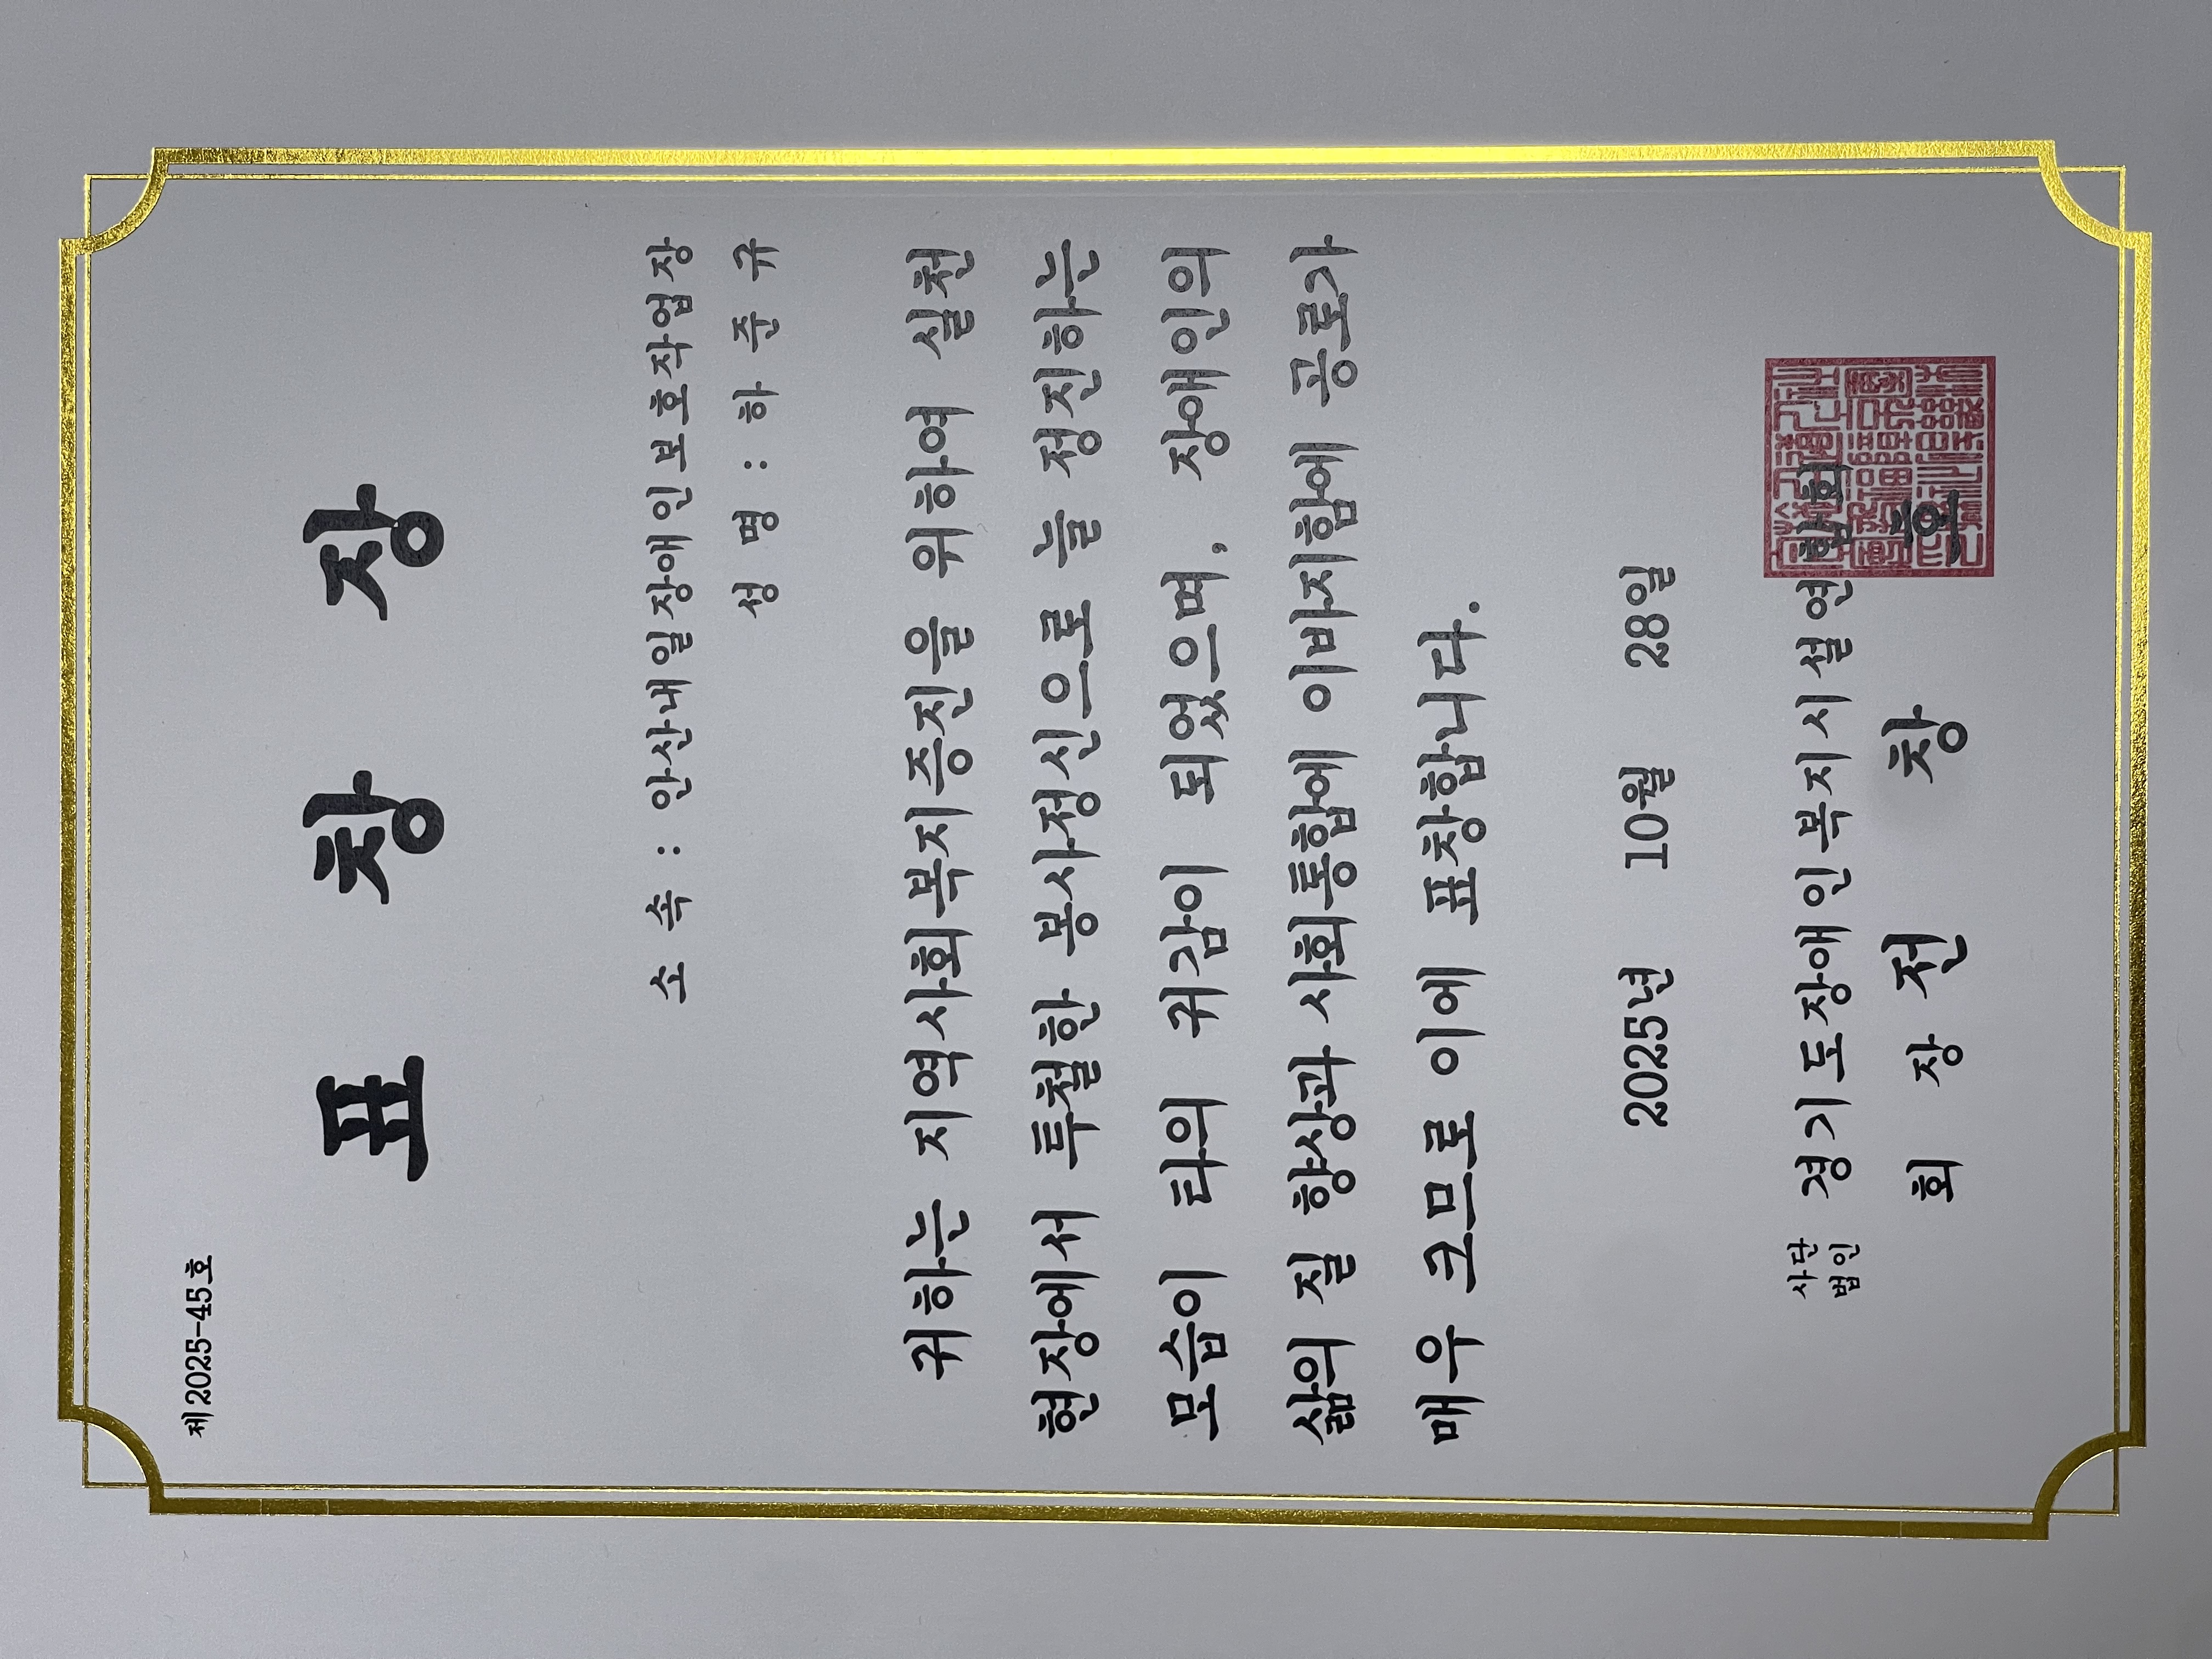 제2025-45호
표 창 장
소 속 : 안산내일장애인보호작업장
성 명 : 하 준 규
귀하는 지역사회복지증진을 위하여 실천
현장에서 투철한 봉사정신으로 늘 정진하는
모습이 타의 귀감이 되었으며, 장애인의
삶의 질 향상과 사회통합에 이바지함에 공로가
매우 크므로 이에 표창합니다.
2025년 10월 28일
사단법인 경기도장애인복지시설연합회
회 장 전 창 훈